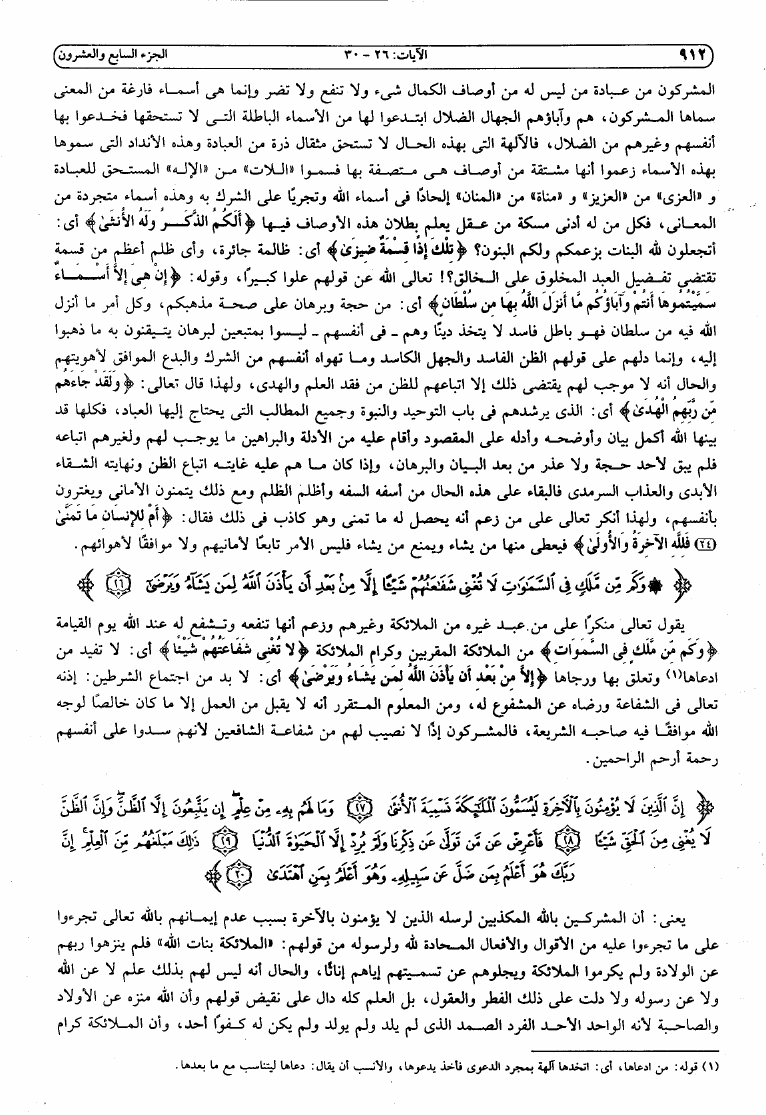 ٩١٢ الآيات: ٢٦ - ٣٠ الجزء السابع والعشرون
المشركون من عبادة من ليس له من أوصاف الكمال شىء ولا تنفع ولا تضر وإنما هى أسماء فارغة من المعنى
سماها المشركون، هم وآباؤهم الجهال الضلال ابتدعوا لها من الأسماء الباطلة التى لا تستحقها فخدعوا بها
أنفسهم وغيرهم من الضلال، فالآلهة التى بهذه الحال لا تستحق مثقال ذرة من العبادة وهذه الأنداد التى سموها
بهذه الأسماء زعموا أنها مشتقة من أوصاف هى متصفة بها فسموا «اللات» من «الإله» المستحق للعبادة
و «العزى» من «العزيز» و «مناة» من «المنان» إلحادًا فى أسماء الله وتجريًا على الشرك به وهذه أسماء متجردة من
المعانى، فكل من له أدنى مسكة من عقل يعلم بطلان هذه الأوصاف فيها ﴿أَلَكُمُ الذَّكَرُ وَلَهُ الأُنثَىٰ﴾ أى:
أتجعلون لله البنات بزعمكم ولكم البنون؟ ﴿تِلْكَ إِذًا قِسْمَةٌ ضِيزَىٰ﴾ أى: ظالمة جائرة، وأى ظلم أعظم من قسمة
تقتضى تفضيل العبد المخلوق على الخالق؟! تعالى الله عن قولهم علوا كبيرًا، وقوله: ﴿إِنْ هِىَ إِلاَّ أَسْمَاءٌ
سَمَّيْتُمُوهَا أَنتُمْ وَآبَاؤُكُم مَّا أَنزَلَ اللَّهُ بِهَا مِن سُلْطَانٍ﴾ أى: من حجة وبرهان على صحة مذهبكم، وكل أمر ما أنزل
الله فيه من سلطان فهو باطل فاسد لا يتخذ دينًا وهم ـ فى أنفسهم ـ ليسوا بمتبعين لبرهان يتيقنون به ما ذهبوا
إليه، وإنما دلهم على قولهم الظن الفاسد والجهل الكاسد وما تهواه أنفسهم من الشرك والبدع الموافق لأهويتهم
والحال أنه لا موجب لهم يقتضى ذلك إلا اتباعهم للظن من فقد العلم والهدى، ولهذا قال تعالى: ﴿وَلَقَدْ جَاءَهُم
مِّن رَّبِّهِمُ الْهُدَىٰ﴾ أى: الذى يرشدهم فى باب التوحيد والنبوة وجميع المطالب التى يحتاج إليها العباد، فكلها قد
بينها الله أكمل بيان وأوضحه وأدله على المقصود وأقام عليه من الأدلة والبراهين ما يوجب لهم ولغيرهم اتباعه
فلم يبق لأحد حجة ولا عذر من بعد البيان والبرهان، وإذا كان ما هم عليه غايته اتباع الظن ونهايته الشقاء
الأبدى والعذاب السرمدى فالبقاء على هذه الحال من أسفه السفه وأظلم الظلم ومع ذلك يتمنون الأمانى ويغترون
بأنفسهم، ولهذا أنكر تعالى على من زعم أنه يحصل له ما تمنى وهو كاذب فى ذلك فقال: ﴿أَمْ لِلإِنسَانِ مَا تَمَنَّىٰ
(٢٤) فَلِلَّهِ الآخِرَةُ وَالأُولَىٰ﴾ فيعطى منها من يشاء ويمنع من يشاء فليس الأمر تابعًا لأمانيهم ولا موافقًا لأهوائهم.
﴿۞ وَكَم مِّن مَّلَكٍ فِى ٱلسَّمَٰوَٰتِ لَا تُغْنِى شَفَٰعَتُهُمْ شَيْـًٔا إِلَّا مِنۢ بَعْدِ أَن يَأْذَنَ ٱللَّهُ لِمَن يَشَآءُ وَيَرْضَىٰٓ ٢٦﴾
يقول تعالى منكرًا على من عبد غيره من الملائكة وغيرهم وزعم أنها تنفعه وتشفع له عند الله يوم القيامة
﴿وَكَم مِّن مَّلَكٍ فِى السَّمَوَاتِ﴾ من الملائكة المقربين وكرام الملائكة ﴿لا تُغْنِى شَفَاعَتُهُمْ شَيْئًا﴾ أى: لا تفيد من
ادعاها(١) وتعلق بها ورجاها ﴿إِلاَّ مِنْ بَعْدِ أَن يَأْذَنَ اللَّهُ لِمَن يَشَاءُ وَيَرْضَىٰ﴾ أى: لا بد من اجتماع الشرطين: إذنه
تعالى فى الشفاعة ورضاه عن المشفوع له، ومن المعلوم المتقرر أنه لا يقبل من العمل إلا ما كان خالصًا لوجه
الله موافقًا فيه صاحبه الشريعة، فالمشركون إذًا لا نصيب لهم من شفاعة الشافعين لأنهم سدوا على أنفسهم
رحمة أرحم الراحمين.
﴿إِنَّ ٱلَّذِينَ لَا يُؤْمِنُونَ بِٱلْأَخِرَةِ لَيُسَمُّونَ ٱلْمَلَٰٓئِكَةَ تَسْمِيَةَ ٱلْأُنثَىٰ ٢٧ وَمَا لَهُم بِهِۦ مِنْ عِلْمٍ إِن يَتَّبِعُونَ إِلَّا ٱلظَّنَّ وَإِنَّ ٱلظَّنَّ
لَا يُغْنِى مِنَ ٱلْحَقِّ شَيْـًٔا ٢٨ فَأَعْرِضْ عَن مَّن تَوَلَّىٰ عَن ذِكْرِنَا وَلَمْ يُرِدْ إِلَّا ٱلْحَيَوٰةَ ٱلدُّنْيَا ٢٩ ذَٰلِكَ مَبْلَغُهُم مِّنَ ٱلْعِلْمِ إِنَّ
رَبَّكَ هُوَ أَعْلَمُ بِمَن ضَلَّ عَن سَبِيلِهِۦ وَهُوَ أَعْلَمُ بِمَنِ ٱهْتَدَىٰ ٣٠﴾
يعنى: أن المشركين بالله المكذبين لرسله الذين لا يؤمنون بالآخرة بسبب عدم إيمانهم بالله تعالى تجرءوا
على ما تجرءوا عليه من الأقوال والأفعال المحادة لله ولرسوله من قولهم: «الملائكة بنات الله» فلم ينزهوا ربهم
عن الولادة ولم يكرموا الملائكة ويجلوهم عن تسميتهم إياهم إناثًا، والحال أنه ليس لهم بذلك علم لا عن الله
ولا عن رسوله ولا دلت على ذلك الفطر والعقول، بل العلم كله دال على نقيض قولهم وأن الله منزه عن الأولاد
والصاحبة لأنه الواحد الأحد الفرد الصمد الذى لم يلد ولم يولد ولم يكن له كفوًا أحد، وأن الملائكة كرام
(١) قوله: من ادعاها، أى: اتخذها آلهة بمجرد الدعوى فأخذ يدعوها، والأنسب أن يقال: دعاها ليتناسب مع ما بعدها.